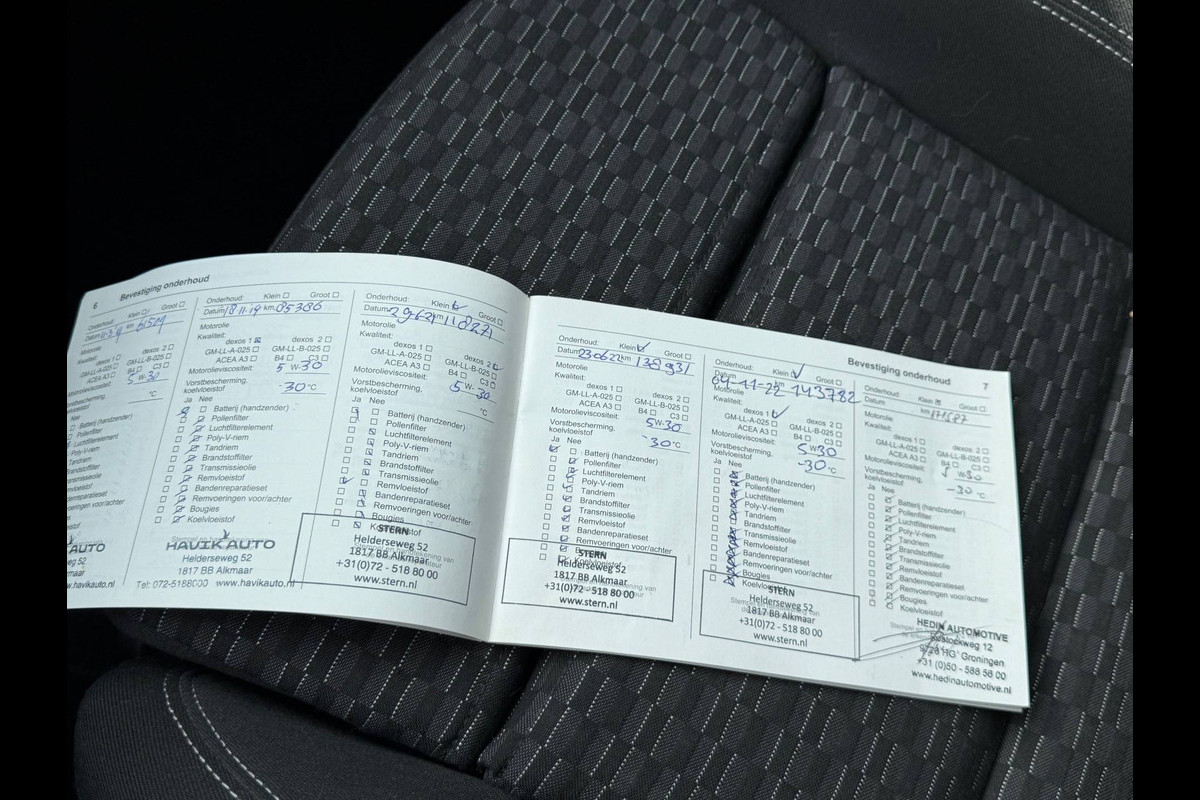 6 Bevestiging onderhoud
Onderhoud: Klein Groot
Datum km 61509
Motorolie
Kwaliteit:
dexos 1 dexos 2
GM-LL-A-025 GM-LL-B-025
ACEA A3 B4 C3
Motorolieviscositeit: 5 W-30
Vorstbescherming,
koelvloeistof °C
Nee
Batterij (handzender)
Pollenfilter
Luchtfilterelement
Poly-V-riem
Tandriem
Brandstoffilter
Transmissieolie
Remvloeistof
Bandenreparatieset
Remvoeringen voor/achter
Bougies
Koelvloeistof
AUTO
www.havikauto.nl
Onderhoud: Klein Groot
Datum 18.11.19 km 85386
Motorolie
Kwaliteit:
dexos 1 dexos 2
GM-LL-A-025 GM-LL-B-025
ACEA A3 B4 C3
Motorolieviscositeit: 5 W-30
Vorstbescherming,
koelvloeistof -30 °C
Ja Nee
Batterij (handzender)
Pollenfilter
Luchtfilterelement
Poly-V-riem
Tandriem
Brandstoffilter
Transmissieolie
Remvloeistof
Bandenreparatieset
Remvoeringen voor/achter
Bougies
Koelvloeistof
HAVIK AUTO
Helderseweg 52
1817 BB Alkmaar
Tel: 072-5188000 www.havikauto.nl
Onderhoud: Klein Groot
Datum 29621 km 118271
Motorolie
Kwaliteit:
dexos 1 dexos 2
GM-LL-A-025 GM-LL-B-025
ACEA A3 B4 C3
Motorolieviscositeit: 5-30
Vorstbescherming,
koelvloeistof °C
Ja Nee
Batterij (handzender)
Pollenfilter
Luchtfilterelement
Poly-V-riem
Tandriem
Brandstoffilter
Transmissieolie
Remvloeistof
Bandenreparatieset
Remvoeringen voor/achter
Bougies
Koelvloeistof
STERN
Helderseweg 52
1817 BB Alkmaar
+31(0)72 - 518 80 00
www.stern.nl
Onderhoud: Klein Groot
Datum 230622 km 138931
Motorolie
Kwaliteit:
dexos 1 dexos 2
GM-LL-A-025 GM-LL-B-025
ACEA A3 B4 C3
Motorolieviscositeit: 5W30
Vorstbescherming,
koelvloeistof -30 °C
Ja Nee
Batterij (handzender)
Pollenfilter
Luchtfilterelement
Poly-V-riem
Tandriem
Brandstoffilter
Transmissieolie
Remvloeistof
Bandenreparatieset
Remvoeringen voor/achter
STERN
Helderseweg 52
1817 BB Alkmaar
+31(0)72 - 518 80 00
www.stern.nl
Bevestiging onderhoud 7
Onderhoud: Klein Groot
Datum 04-11-22 143782
Motorolie
Kwaliteit:
dexos 1 dexos 2
GM-LL-A-025 GM-LL-B-025
ACEA A3 B4 C3
Motorolieviscositeit: 5W30
Vorstbescherming,
koelvloeistof -30 °C
Ja Nee
Batterij (handzender)
Pollenfilter
Luchtfilterelement
Poly-V-riem
Tandriem
Brandstoffilter
Transmissieolie
Remvloeistof
Bandenreparatieset
Remvoeringen voor/achter
Bougies
Koelvloeistof
STERN
Helderseweg 52
1817 BB Alkmaar
+31(0)72 - 518 80 00
www.stern.nl
Onderhoud: Klein Groot
Datum km
Motorolie
Kwaliteit:
dexos 1 dexos 2
GM-LL-A-025 GM-LL-B-025
ACEA A3 B4 C3
Motorolieviscositeit: 5 W30
Vorstbescherming,
koelvloeistof -30 °C
Ja Nee
Batterij (handzender)
Pollenfilter
Luchtfilterelement
Poly-V-riem
Tandriem
Brandstoffilter
Transmissieolie
Remvloeistof
Bandenreparatieset
Remvoeringen voor/achter
Bougies
Koelvloeistof
HEDIN AUTOMOTIVE
Rostockweg 12
HG Groningen
+31 (0)50 - 588 58 00
www.hedinautomotive.nl